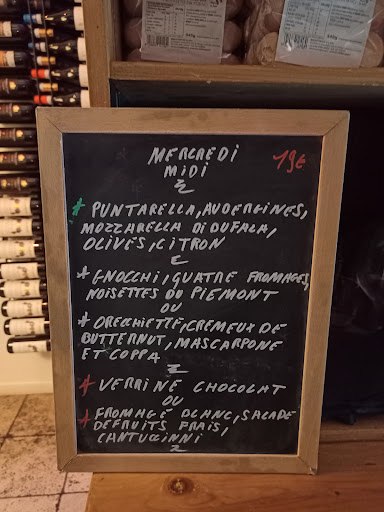 MERCREDI 19€
MIDI
* PUNTARELLA, AUBERGINES,
MOZZARELLA DI BUFALA,
OLIVES, CITRON
* GNOCCHI, QUATRE FROMAGES,
NOISETTES DU PIEMONT
OU
* ORECCHIETTE, CREMEUX DE
BUTTERNUT, MASCARPONE
ET COPPA
* VERRINE CHOCOLAT
OU
* FROMAGE BLANC, SALADE
DE FRUITS FRAIS,
CANTUCCINNI